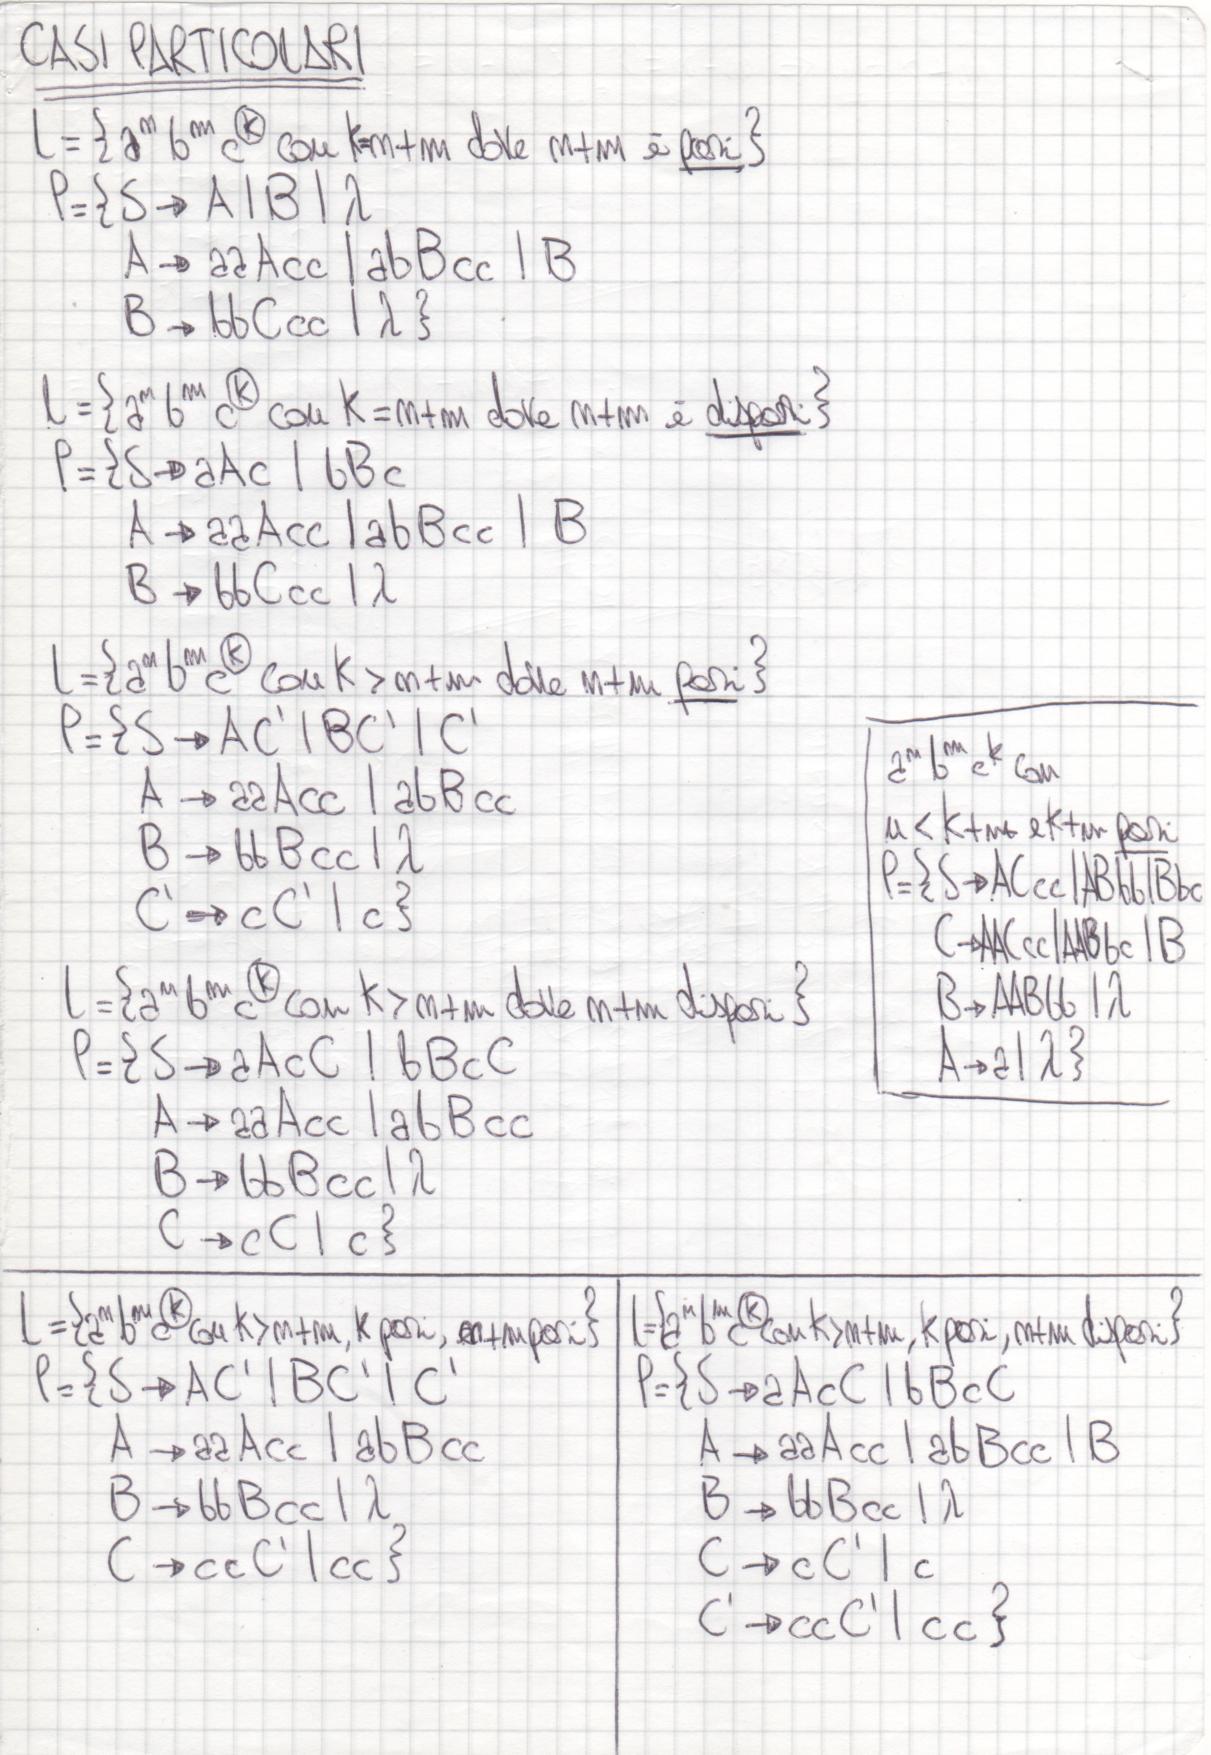 CASI PARTICOLARI
L={aⁿ bᵐ cᵏ con k=n+m dove n+m è pari}
P={S → A | B | λ
A → aaAcc | abBcc | B
B → bbCcc | λ}
L={aⁿ bᵐ cᵏ con k=n+m dove n+m è dispari}
P={S → aAc | bBc
A → aaAcc | abBcc | B
B → bbCcc | λ
L={aⁿ bᵐ cᵏ con k>n+m dove n+m pari}
P={S → AC' | BC' | C'
A → aaAcc | abBcc
B → bbBcc | λ
C' → cC' | c}
L={aⁿ bᵐ cᵏ con k>n+m dove n+m dispari}
P={S → aAcC | bBcC
A → aaAcc | abBcc
B → bbBcc | λ
C → cC | c}
aⁿ bᵐ cᵏ con
n < k+m e k+m pari
P={S → ACcc | ABbb | Bbc
C → AACcc | AABbc | B
B → AABbb | λ
A → a | λ}
L={aⁿ bᵐ cᵏ con k>n+m, k pari, n+m pari}
P={S → AC' | BC' | C'
A → aaAcc | abBcc
B → bbBcc | λ
C → ccC' | cc}
L={aⁿ bᵐ cᵏ con k>n+m, k pari, n+m dispari}
P={S → aAcC | bBcC
A → aaAcc | abBcc | B
B → bbBcc | λ
C → cC' | c
C' → ccC' | cc}